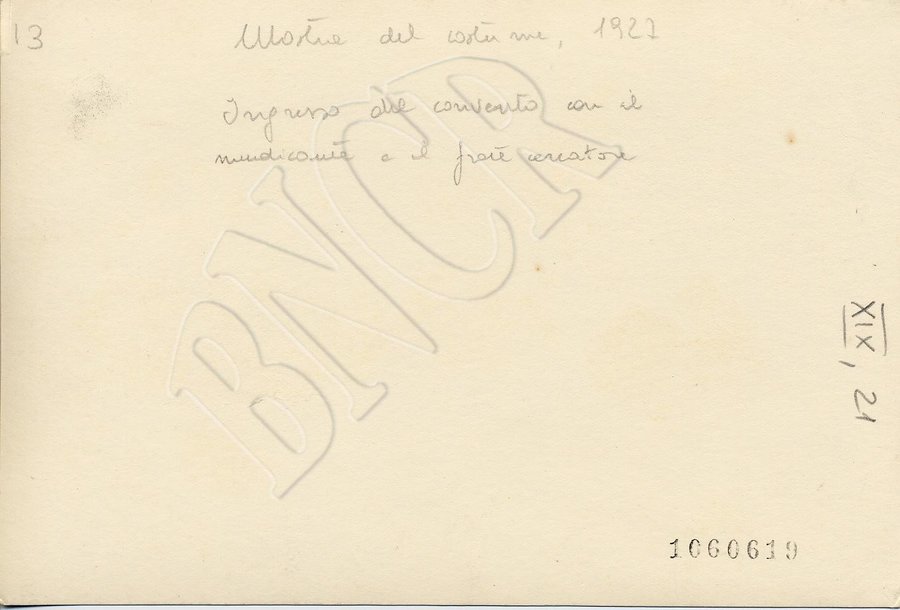 13
Mostra del costume, 1927
Ingresso del convento con il
mendicante e il frate cercatore
BNCR
XIX, 21
1060619